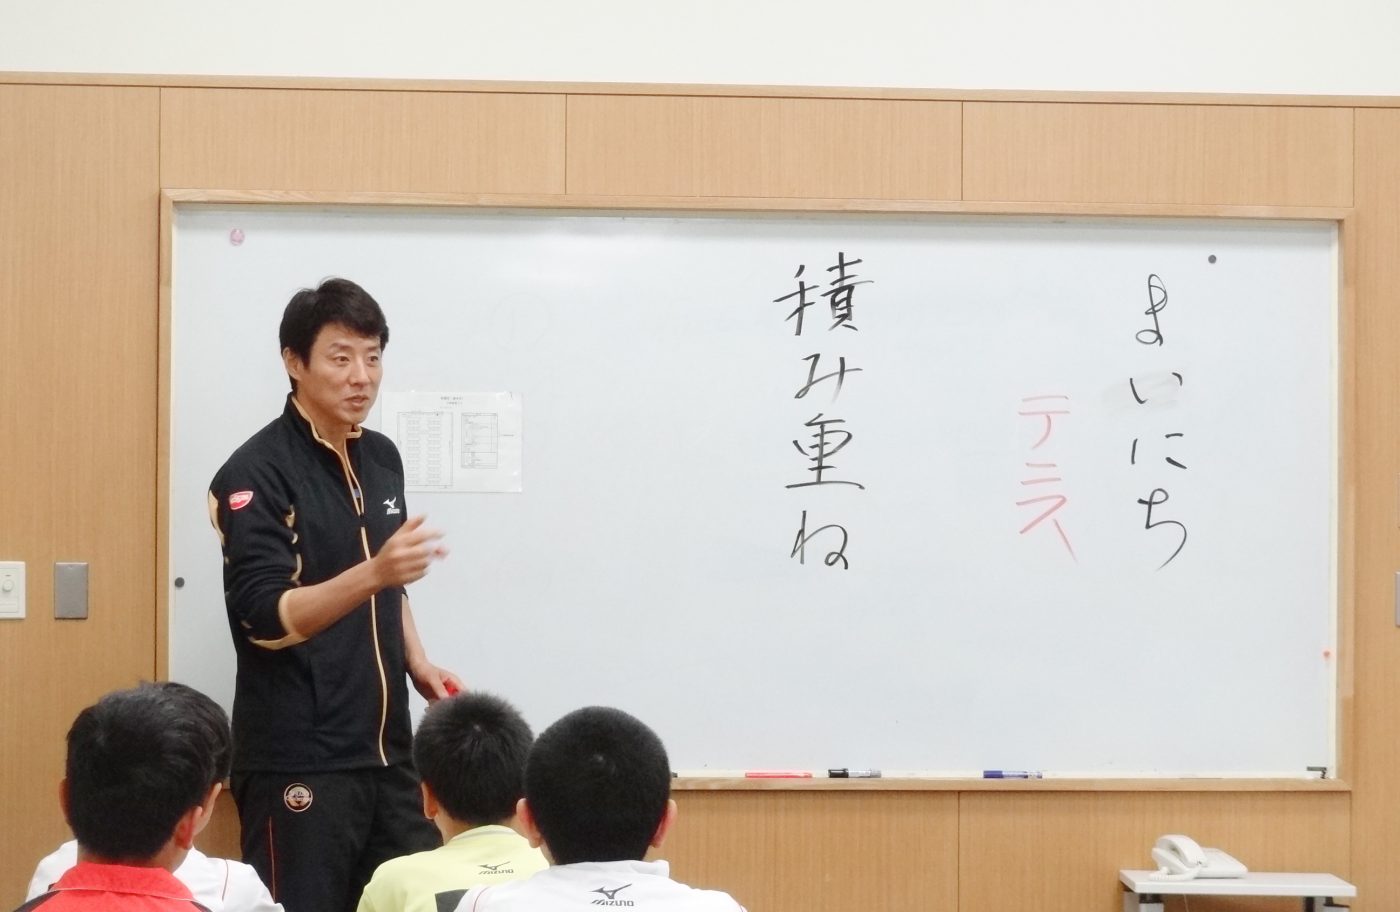 まいにち
テニス
積み重ね
MIZUNO
MIZUNO
MIZUNO